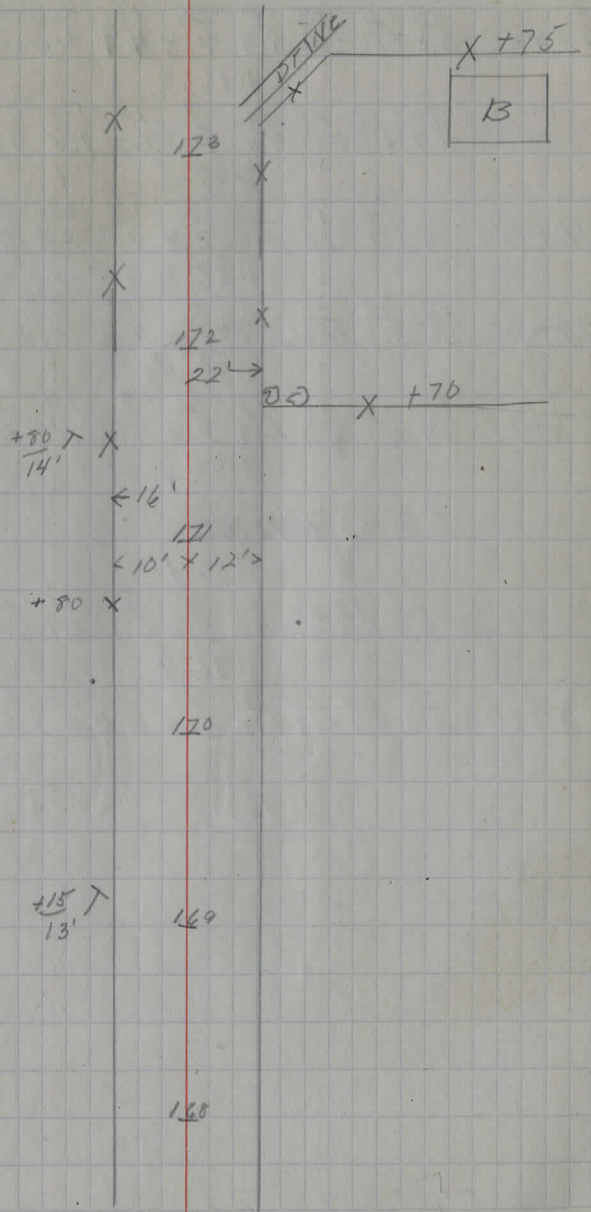 DRIVE
X +75
X
B
X
173
X
X
X
172
22'
+70
X
+80 T X
14'
16'
171
10' X 12'
+80 X
170
+15 T
13'
169
168